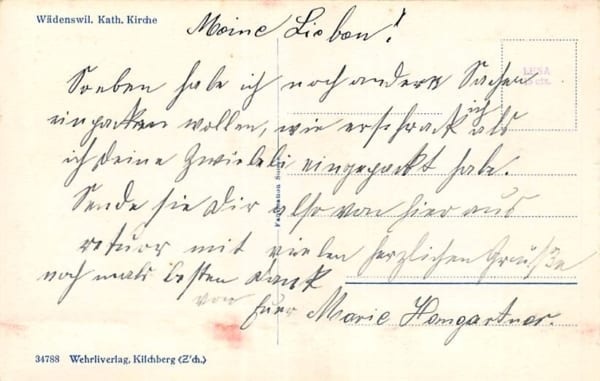 Wädenswil. Kath. Kirche
Meine Lieben!
Soeben habe ich noch andere Sachen
einpacken wollen, wie erschrack ich als
ich deine Zwiebeli eingepackt habe.
Sende sie Dir also von hier aus
retuor mit vielen herzlichen Grüßen
noch mals besten Dank
von
Euer Marie Homgartner.
LUNA
34788 Wehrliverlag, Kilchberg (Z'ch.)